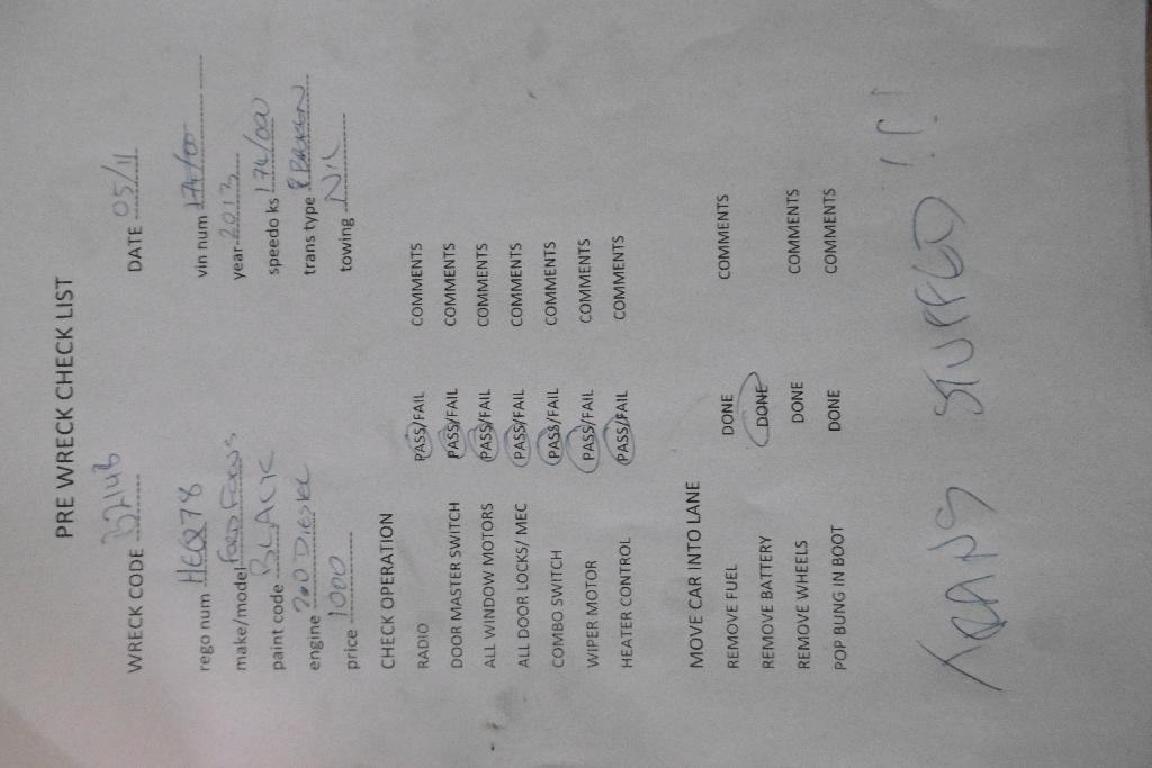 PRE WRECK CHECK LIST
WRECK CODE DATE 05/11
rego num HEQ78 vin num
make/model FORD FOCUS year 2013
paint code BLACK speedo ks 174/000
engine 2.0 DIESEL trans type BROKEN
price 1000 towing NIL
CHECK OPERATION
RADIO PASS/FAIL COMMENTS
DOOR MASTER SWITCH PASS/FAIL COMMENTS
ALL WINDOW MOTORS PASS/FAIL COMMENTS
ALL DOOR LOCKS/ MEC PASS/FAIL COMMENTS
COMBO SWITCH PASS/FAIL COMMENTS
WIPER MOTOR PASS/FAIL COMMENTS
HEATER CONTROL PASS/FAIL COMMENTS
MOVE CAR INTO LANE
REMOVE FUEL DONE COMMENTS
REMOVE BATTERY DONE
REMOVE WHEELS DONE COMMENTS
POP BUNG IN BOOT DONE COMMENTS
TRANS STUFFED !!!